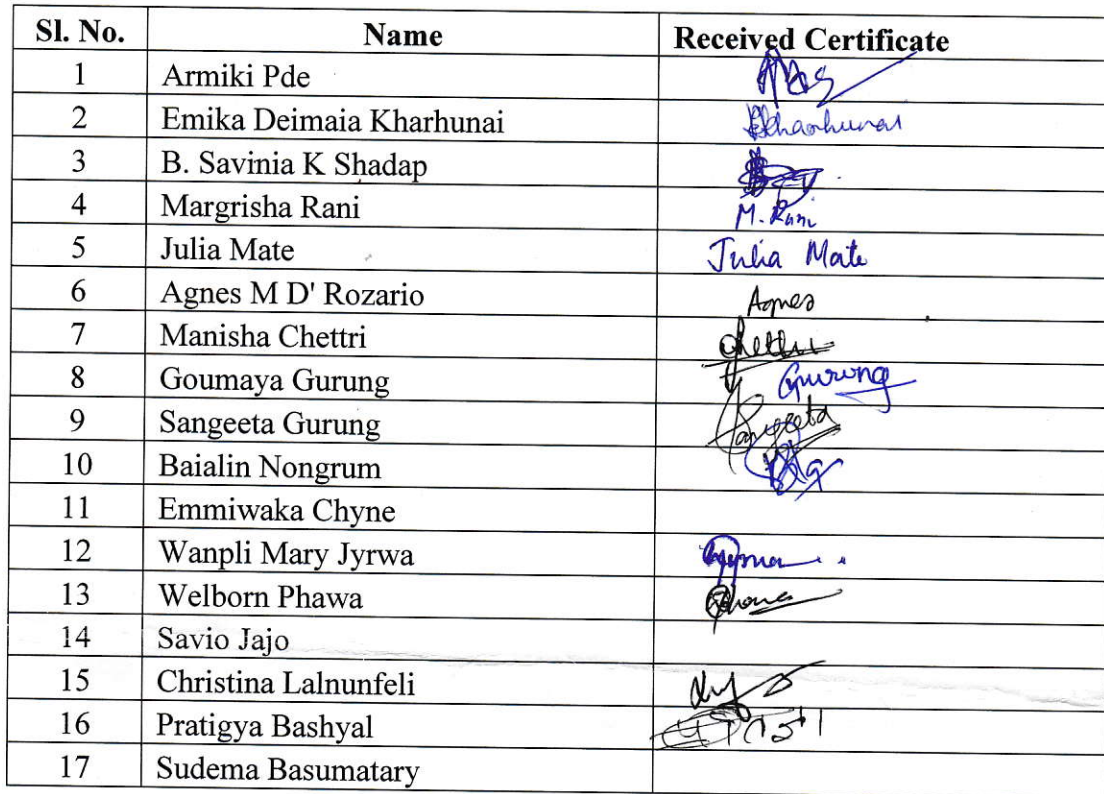 Sl. No. Name Received Certificate
1 Armiki Pde
2 Emika Deimaia Kharhunai Kharhunai
3 B. Savinia K Shadap
4 Margrisha Rani M. Rani
5 Julia Mate Julia Mate
6 Agnes M D' Rozario Agnes
7 Manisha Chettri Chettri
8 Goumaya Gurung Gurung
9 Sangeeta Gurung Sangeeta
10 Baialin Nongrum
11 Emmiwaka Chyne
12 Wanpli Mary Jyrwa
13 Welborn Phawa
14 Savio Jajo
15 Christina Lalnunfeli
16 Pratigya Bashyal
17 Sudema Basumatary